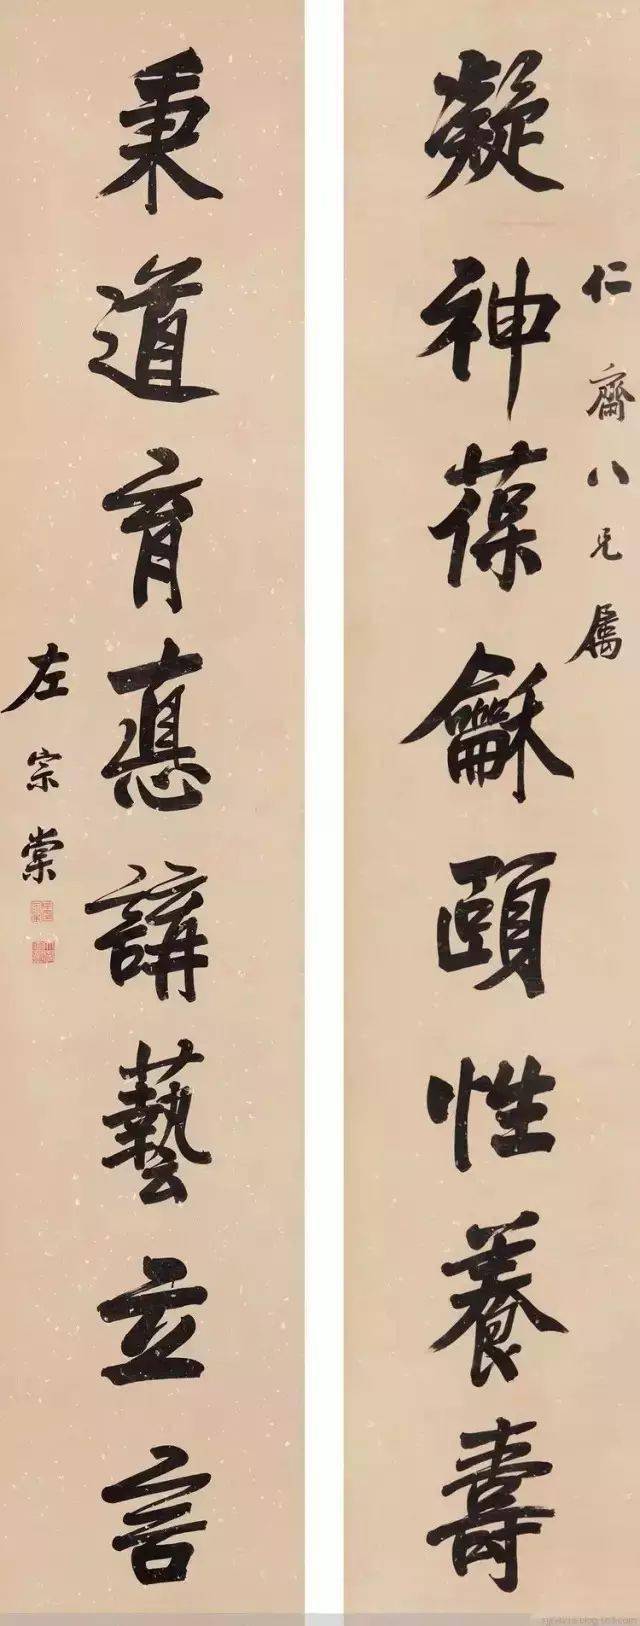 仁齋八兄屬
凝神葆龢頤性養壽
秉道育悳講藝立言
左宗棠